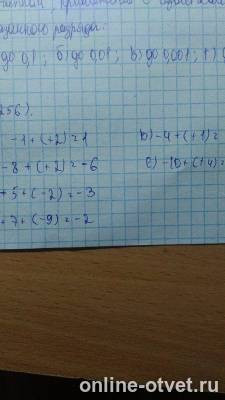 разряда.
до 0,1; б) до 0,01; в) до 0,001; г)
256).
-1+(+2)=1
-8+(+2)=-6
+5+(-2)=-3
+7+(-9)=-2
-4+(+1)=
-10+(+4)=
online-otvet.ru